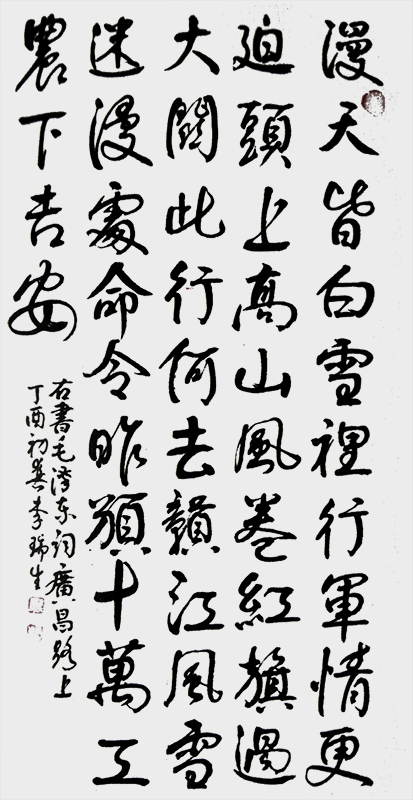 漫天皆白雪裡行軍情更
迫頭上高山風卷紅旗過
大關此行何去贛江風雪
迷漫處命令昨頒十萬工
農下吉安
右書毛澤东詞廣昌路上
丁酉初李瑞生